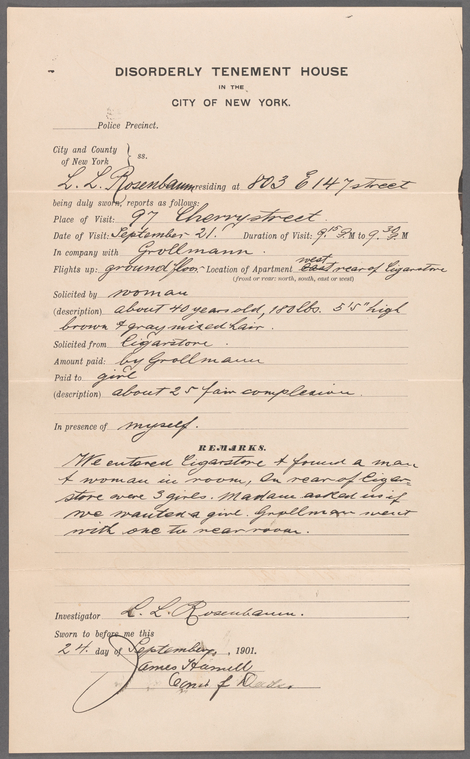 DISORDERLY TENEMENT HOUSE
IN THE
CITY OF NEW YORK.
Police Precinct.
City and County
of New York } ss.
L. L. Rosenbaum, residing at 803 E 147 street
being duly sworn, reports as follows:
Place of Visit: 97 Cherry street.
Date of Visit: September 21. Duration of Visit: 9.15 P.M to 9.30 P.M
In company with Grollmann.
west
Flights up: ground floor. Location of Apartment East rear of Cigarstore
(front or rear: north, south, east or west)
Solicited by woman
(description) about 40 years old, 180 lbs. 5'5" high
brown & gray mixed hair.
Solicited from Cigarstore.
Amount paid: by Grollmann
Paid to girl
(description) about 25 fair complexion.
In presence of myself.
REMARKS.
We entered Cigarstore & found a man
& woman in room, In rear of Cigar-
store were 3 girls. Madam asked us if
we wanted a girl. Grollman went
with one to rear room.
Investigator L. L. Rosenbaum.
Sworn to before me this
24. day of September, 1901.
James Hamill
Com of Deeds